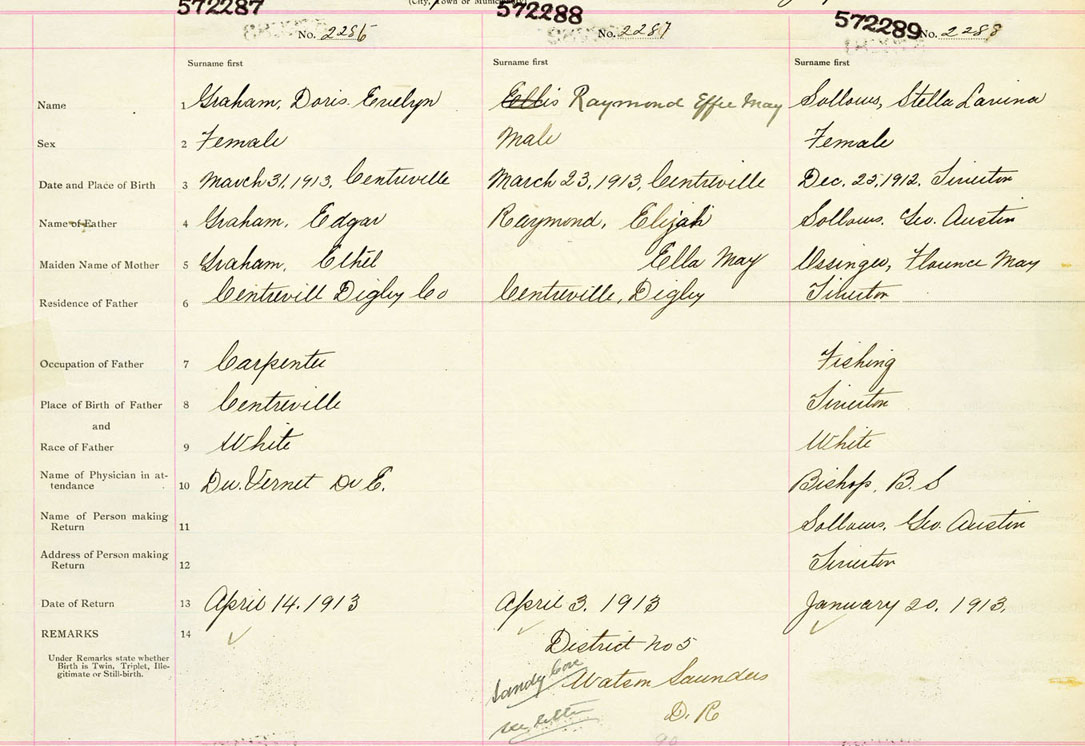 572287 572288 572289
(City, Town or Municipality)
No. 2286 No. 2287 No. 2288
Surname first Surname first Surname first
Name 1 Graham, Doris Evelyn Ellis Raymond Effie May Sollows, Stella Lavina
Sex 2 Female Male Female
Date and Place of Birth 3 March 31, 1913, Centreville March 23, 1913, Centreville Dec. 25, 1912, Tiverton
Name of Father 4 Graham, Edgar Raymond, Elijah Sollows, Geo. Austin
Maiden Name of Mother 5 Graham, Ethel Ella May Florence May
Residence of Father 6 Centrevill Digby Co Centreville, Digby Tiverton
Occupation of Father 7 Carpenter Fishing
Place of Birth of Father 8 Centreville Tiverton
and
Race of Father 9 White White
Name of Physician in at-
tendance 10 Du. Vernet Dr E. Bishop, B. S
Name of Person making
Return 11 Sollows, Geo. Austin
Address of Person making
Return 12 Tiverton
Date of Return 13 April 14. 1913 April 3. 1913 January 20. 1913.
REMARKS 14 District No 5
Under Remarks state whether
Birth is Twin, Triplet, Ille-
gitimate or Still-birth.
Sandy Cove Watson Saunders
see letter D. R